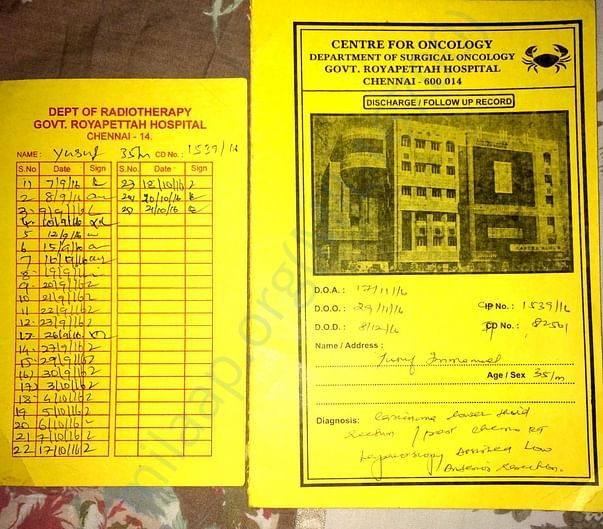 DEPT OF RADIOTHERAPY
GOVT. ROYAPETTAH HOSPITAL
CHENNAI - 14.
NAME : Yusuf 35/m CD No. : 1539/16
S.No Date Sign S.No. Date Sign
1) 7/9/16 23 12/10/16
2 8/9/16 24 20/10/16
3 9/9/16 25 21/10/16
4 10/9/16
5 12/9/16
6 15/9/16
7 16/9/16
8 19/9/16
9 20/9/16
10 21/9/16
11 22/9/16
12 23/9/16
13 26/9/16
14 27/9/16
15 29/9/16
16) 30/9/16
17) 3/10/16
18 4/10/16
19 5/10/16
20 6/10/16
21 7/10/16
22 17/10/16
CENTRE FOR ONCOLOGY
DEPARTMENT OF SURGICAL ONCOLOGY
GOVT. ROYAPETTAH HOSPITAL
CHENNAI - 600 014
DISCHARGE / FOLLOW UP RECORD
D.O.A : 17/11/16
D.O.O : 29/11/16 IP No. : 1539/16
D.O.D : 8/12/16 CD No. : 82501
Name / Address :
Yusuf Immanuel
Age / Sex 35/m
Diagnosis: Carcinoma lower third
rectum / post chemo RT
Laparoscopy Assisted Low
Anterior Resection.
milaap.org